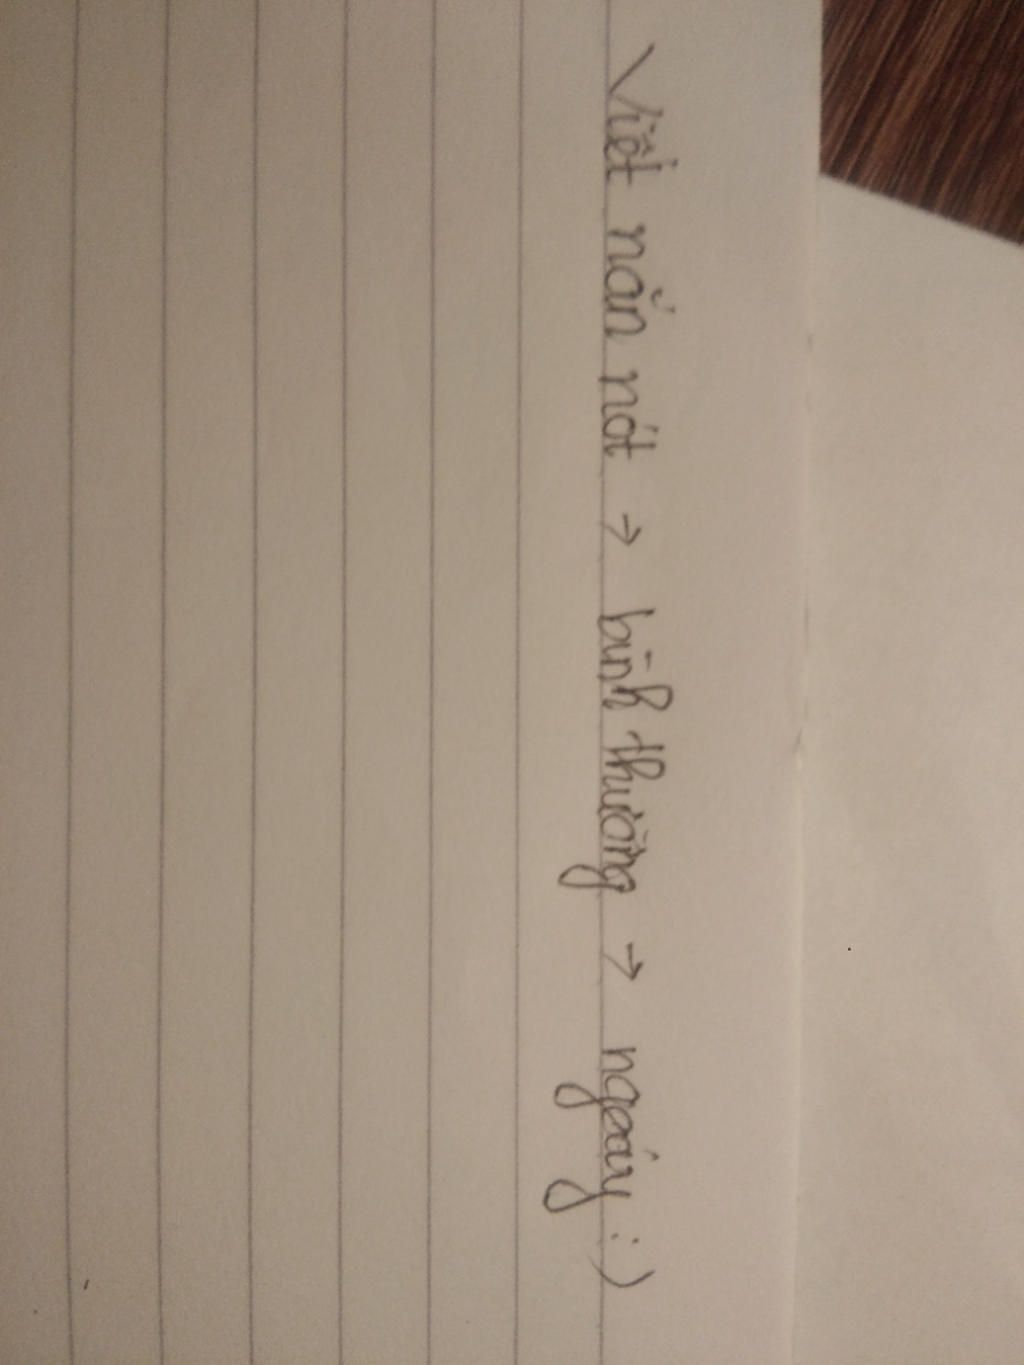 Viết nắn nót → bình thường → ngoáy :)